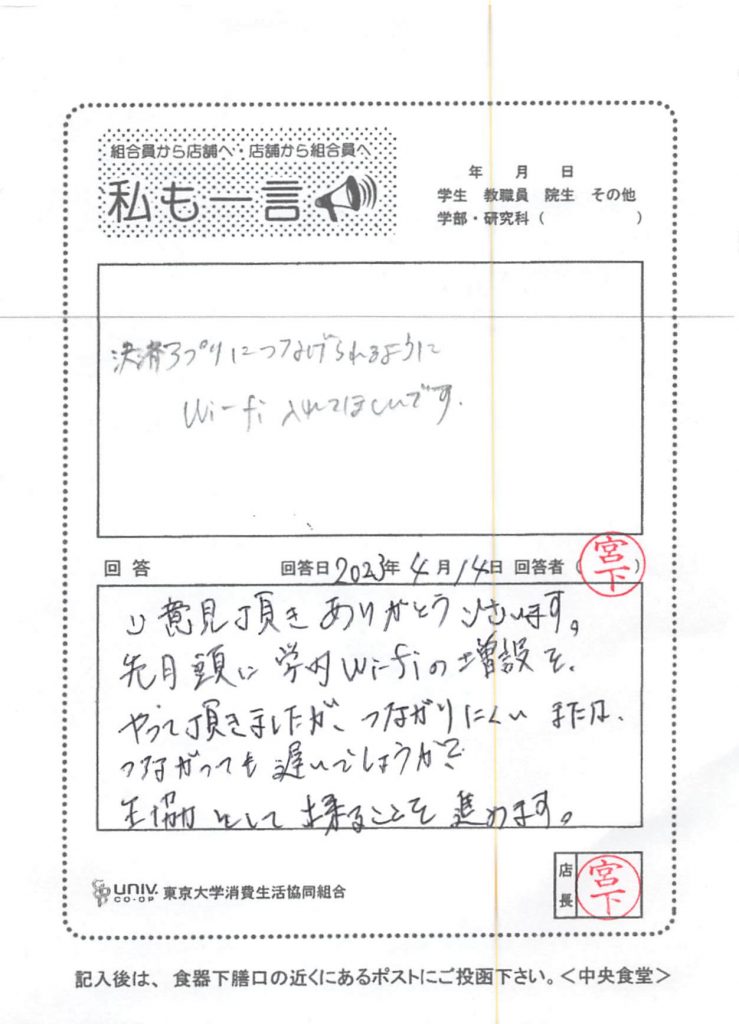 組合員から店舗へ・店舗から組合員へ
私も一言
年 月 日
学生 教職員 院生 その他
学部・研究科（ ）
決済アプリにつなげられるように
Wi-fi 入れてほしいです.
回答 回答日 2023年 4月 14日 回答者（宮下）
ご意見頂きありがとうございます。
先月頭に学内Wi-fiの増設を、
やって頂きましたが、つながりにくいまたは、
つながっても遅いでしょうか?
生協として出来ることを進めます。
UNIV. CO-OP 東京大学消費生活協同組合
店長 宮下
記入後は、食器下膳口の近くにあるポストにご投函下さい。＜中央食堂＞